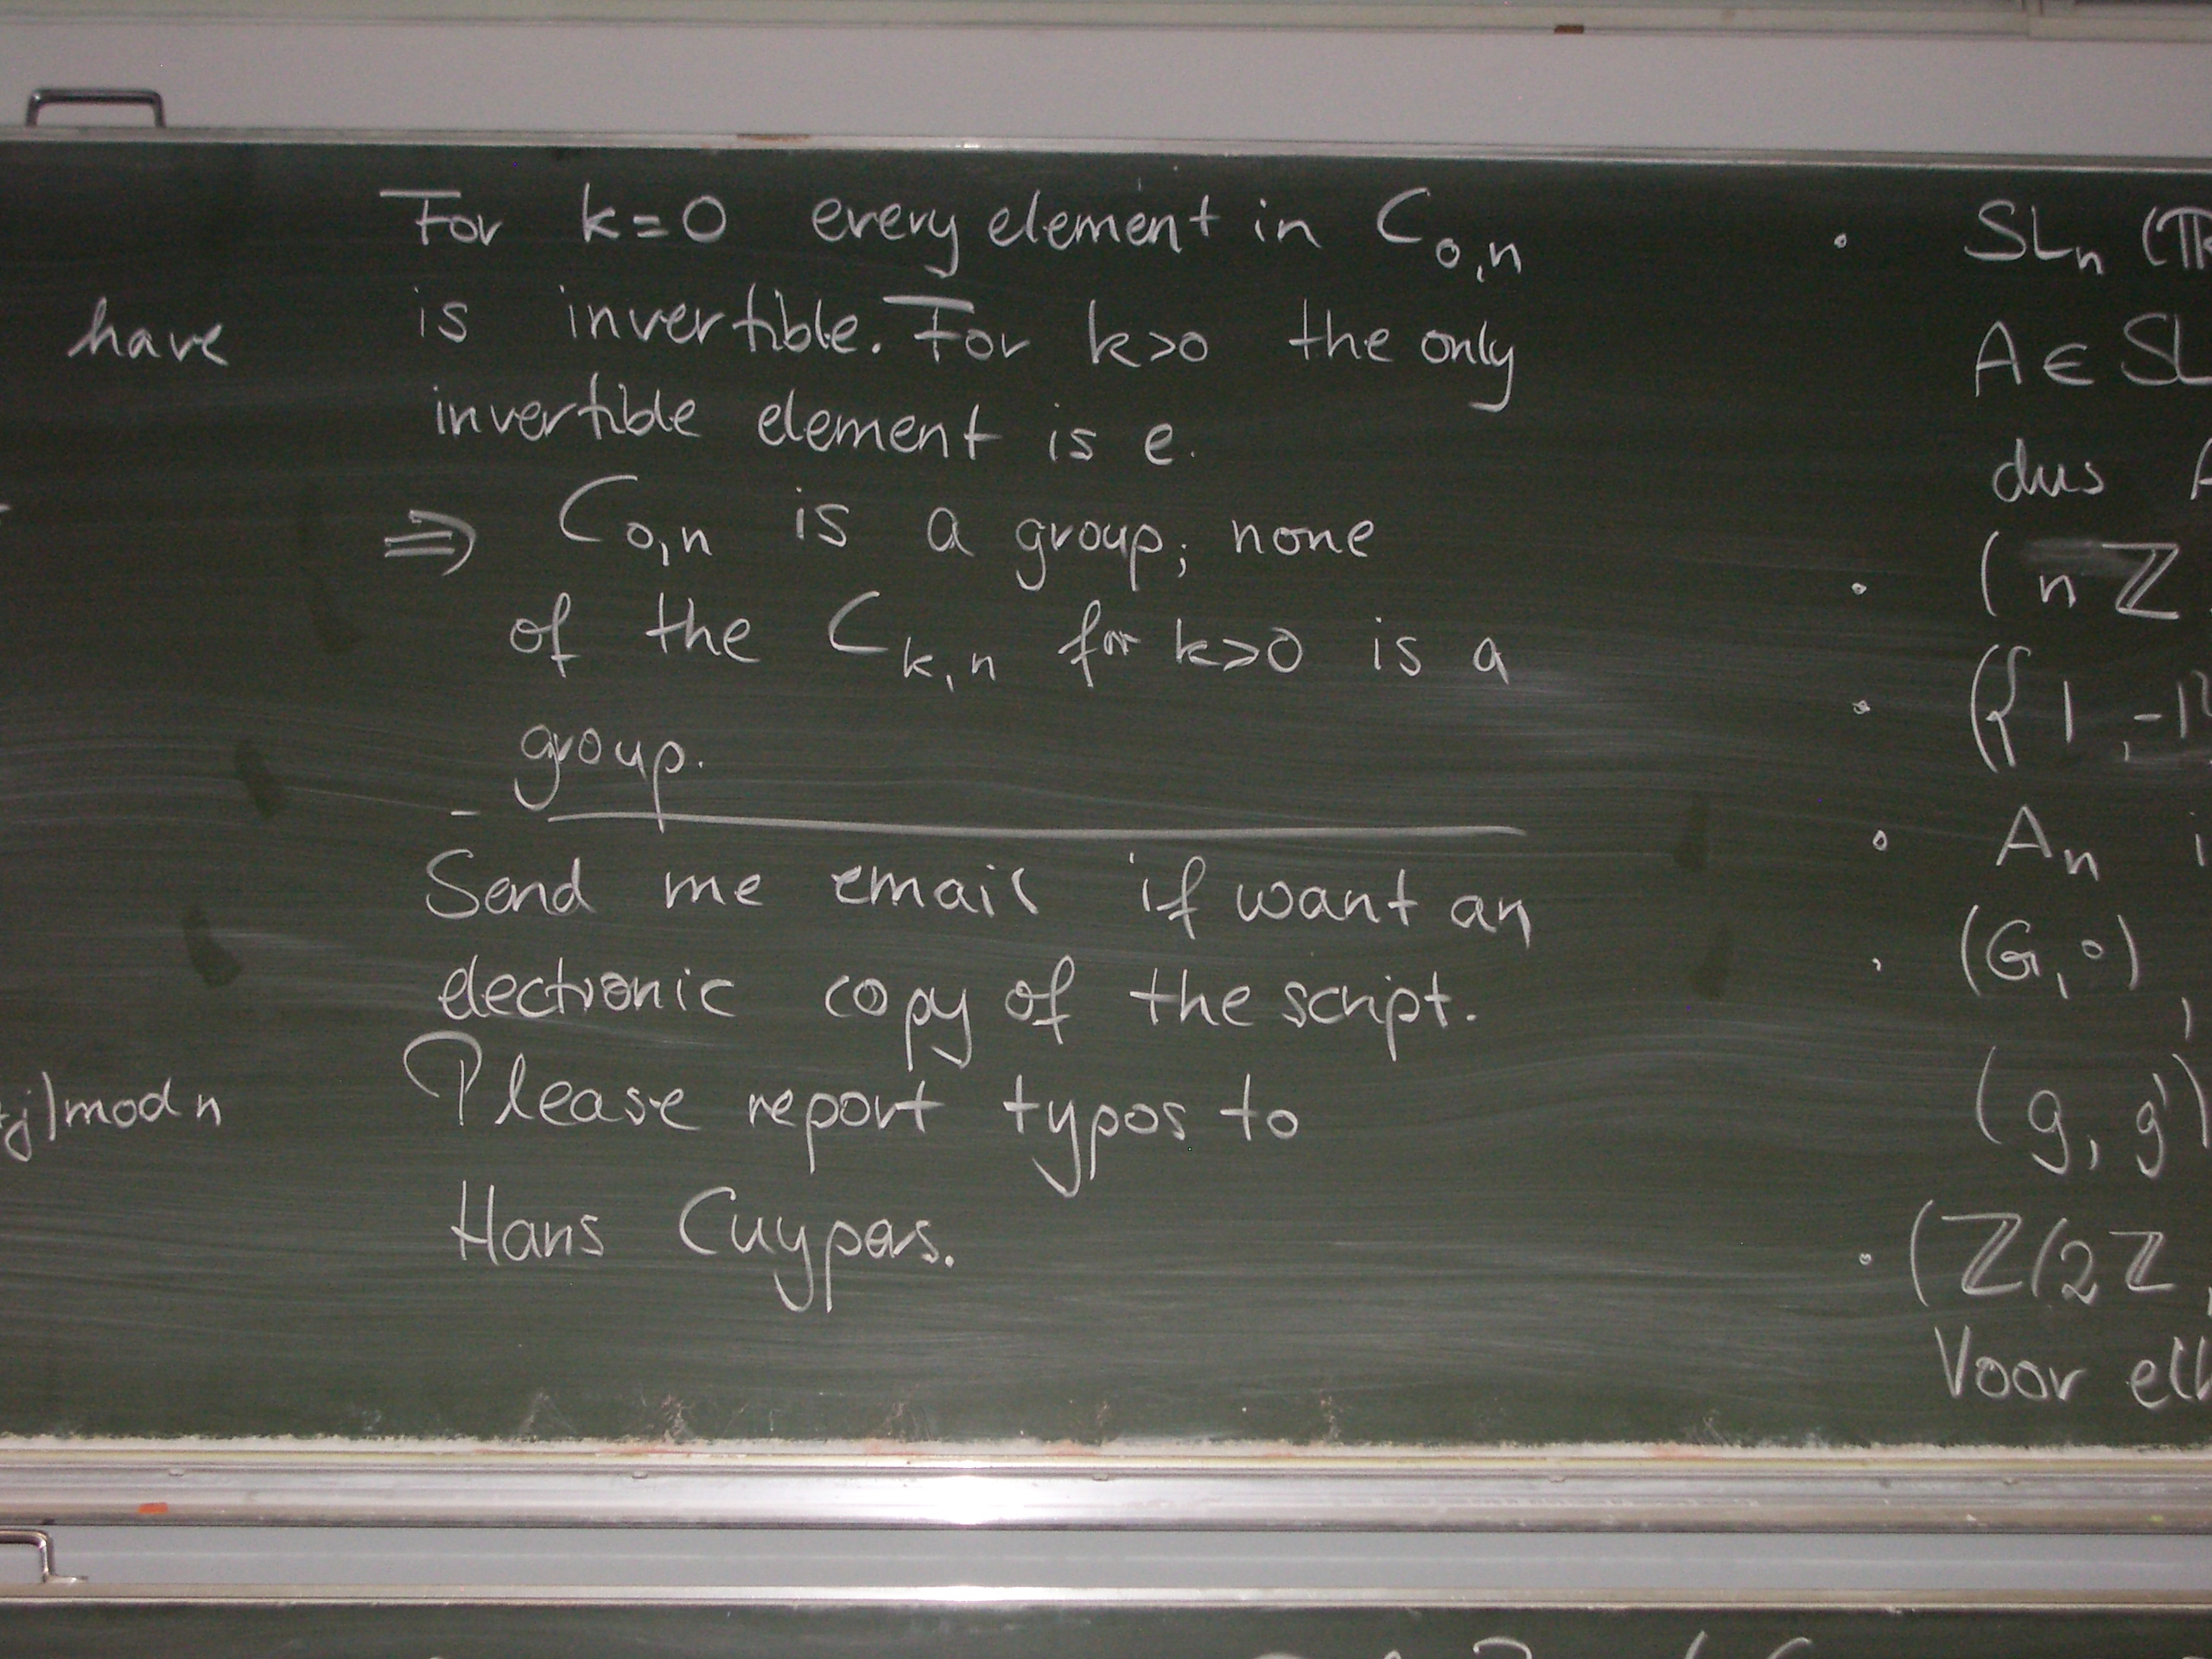 For k=0 every element in C₀,ₙ
is invertible. For k>0 the only
invertible element is e.
⇒ C₀,ₙ is a group; none
of the Cₖ,ₙ for k>0 is a
group.
Send me email if want an
electronic copy of the script.
Please report typos to
Hans Cuypers.
have
j) mod n
• SLₙ (ℝ
A ∈ SL
dus A
• (nℤ
• ({1,-1}
• Aₙ i
• (G,∘),
(g, g')
• (ℤ/2ℤ,
Voor elk